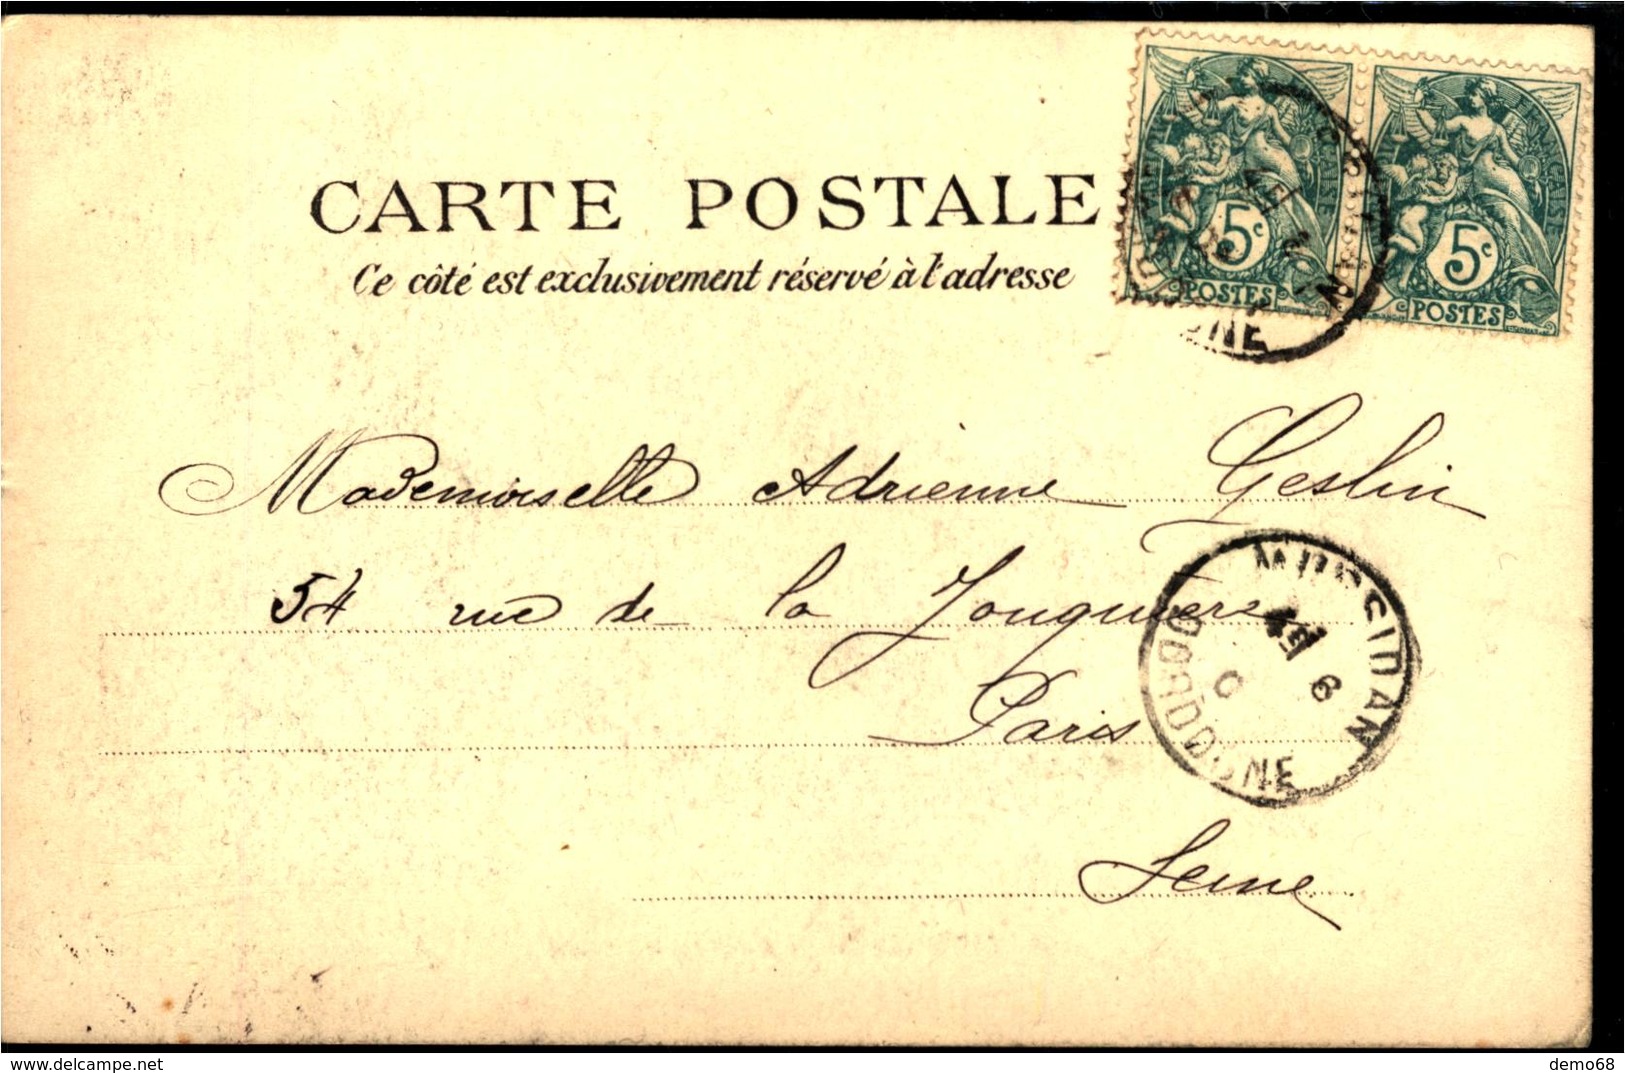 CARTE POSTALE
Ce côté est exclusivement réservé à l'adresse
FRANÇAISE
5c 5c
POSTES POSTES
Mademoiselle Adrienne Geslin
54 rue de la Jonquière
Paris
Seine
MUSSIDAN
DORDOGNE
demo68